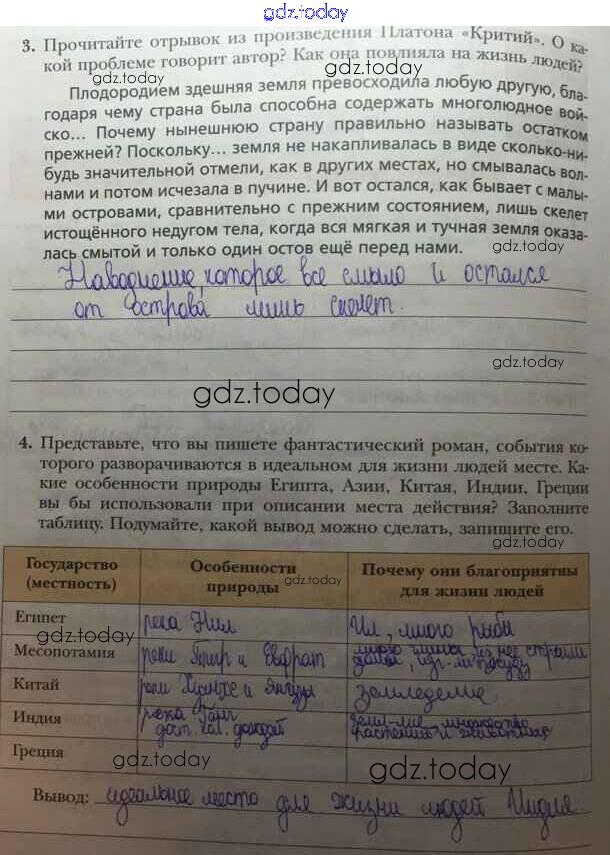 gdz.today
3. Прочитайте отрывок из произведения Платона «Критий». О ка-
кой проблеме говорит автор? Как она повлияла на жизнь людей?
gdz.today
Плодородием здешняя земля превосходила любую другую, бла-
годаря чему страна была способна содержать многолюдное вой-
ско... Почему нынешнюю страну правильно называть остатком
gdz.today
прежней? Поскольку... земля не накапливалась в виде сколько-ни-
будь значительной отмели, как в других местах, но смывалась вол-
нами и потом исчезала в пучине. И вот остался, как бывает с малы-
ми островами, сравнительно с прежним состоянием, лишь скелет
истощённого недугом тела, когда вся мягкая и тучная земля оказа-
лась смытой и только один остов ещё перед нами.
gdz.today
Наводнение, которое все смыло и остался
от острова лишь скелет.
gdz.today
gdz.today
4. Представьте, что вы пишете фантастический роман, события ко-
торого разворачиваются в идеальном для жизни людей месте. Ка-
кие особенности природы Египта, Азии, Китая, Индии, Греции
вы бы использовали при описании места действия? Заполните
таблицу. Подумайте, какой вывод можно сделать, запишите его.
gdz.today
Государство (местность) Особенности природы Почему они благоприятны для жизни людей
gdz.today
Египет река Нил Ил, много рыбы
gdz.today
Месопотамия реки Тигр и Евфрат много глины, из нее строили дома,
gdz.today
Китай реки Хуанхэ и Янцзы земледелие
Индия река Ганг дождей множество растений и животных
gdz.today
Греция
gdz.today
Вывод: идеальное место для жизни людей Индия
gdz.today